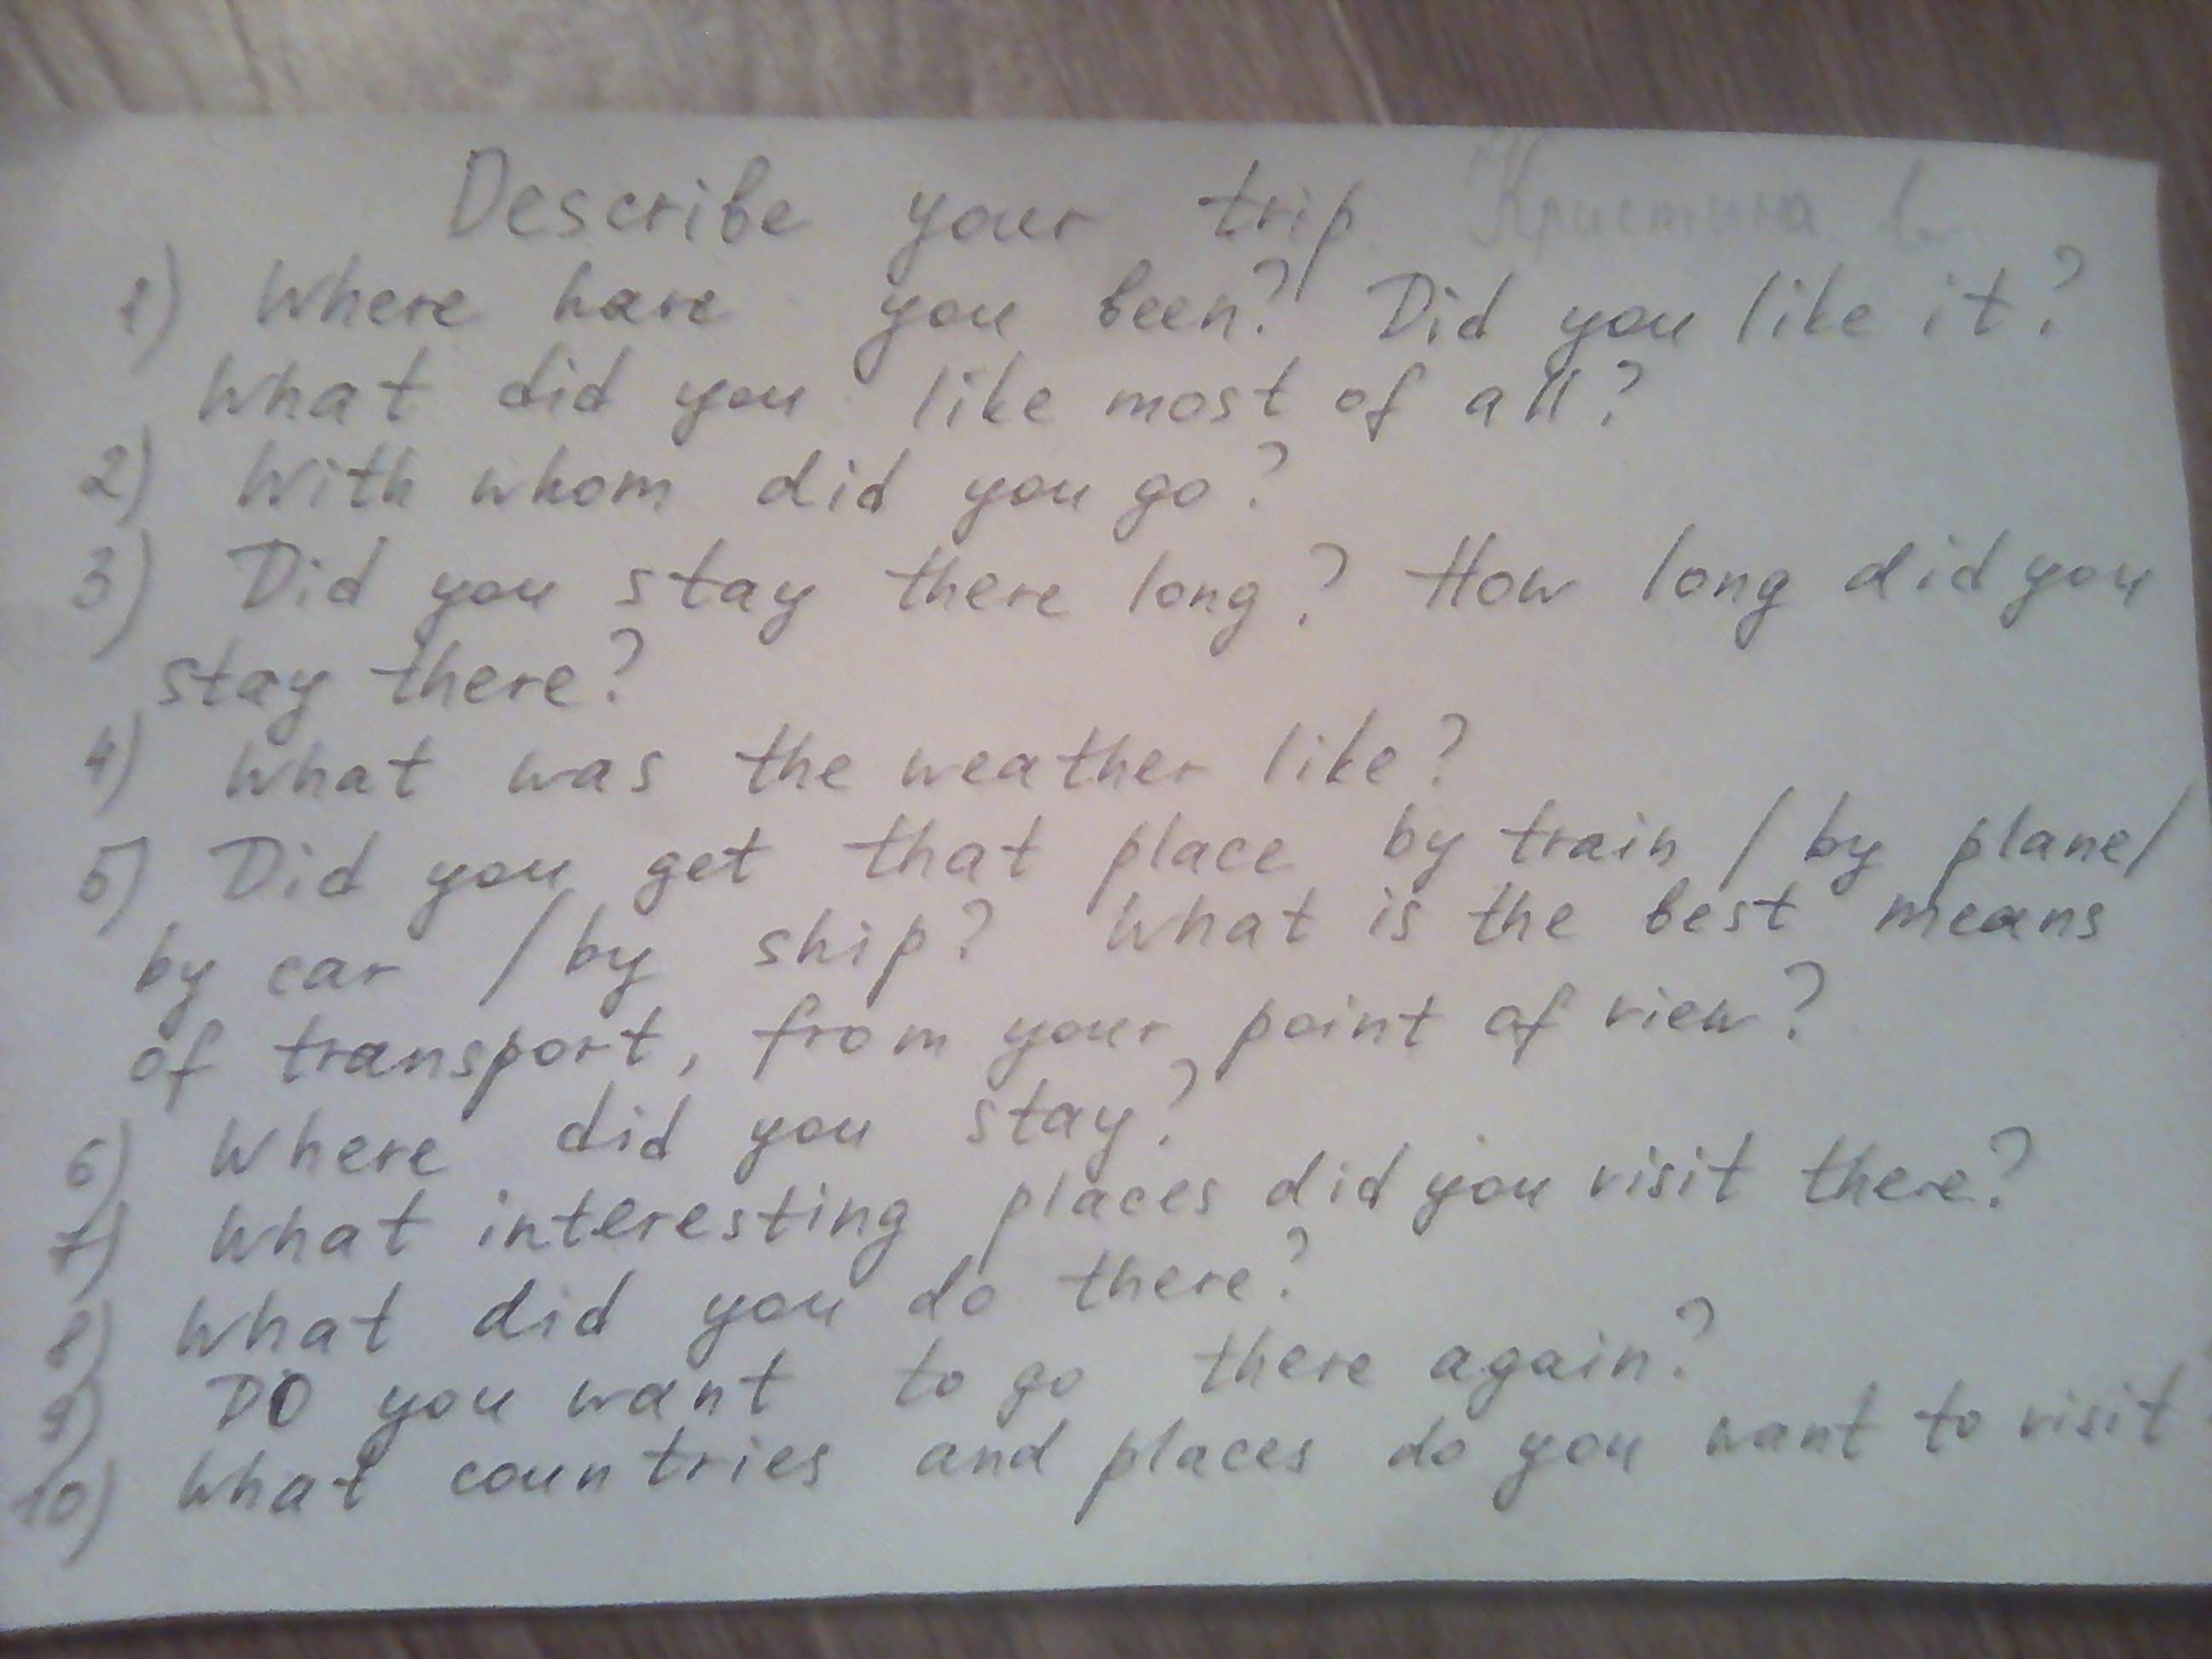 Describe your trip Кристина
1) Where have you been? Did you like it?
What did you like most of all?
2) With whom did you go?
3) Did you stay there long? How long did you
stay there?
4) What was the weather like?
5) Did you get that place by train / by plane/
by car / by ship? What is the best means
of transport, from your point of view?
6) Where did you stay?
7) What interesting places did you visit there?
8) What did you do there?
9) DO you want to go there again?
10) What countries and places do you want to visit